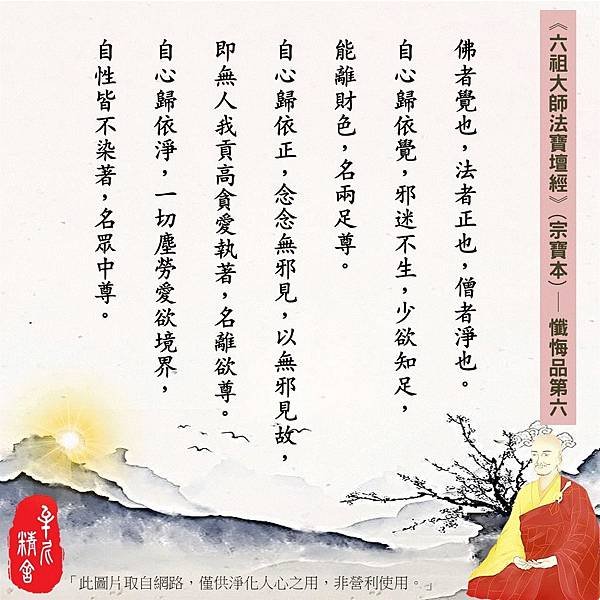 《六祖大師法寶壇經》（宗寶本）— 懺悔品第六
佛者覺也，法者正也，僧者淨也。
自心歸依覺，邪迷不生，少欲知足，
能離財色，名兩足尊。
自心歸依正，念念無邪見，以無邪見故，
即無人我貢高貪愛執著，名離欲尊。
自心歸依淨，一切塵勞愛欲境界，
自性皆不染著，名眾中尊。
精舍
「此圖片取自網路，僅供淨化人心之用，非營利使用。